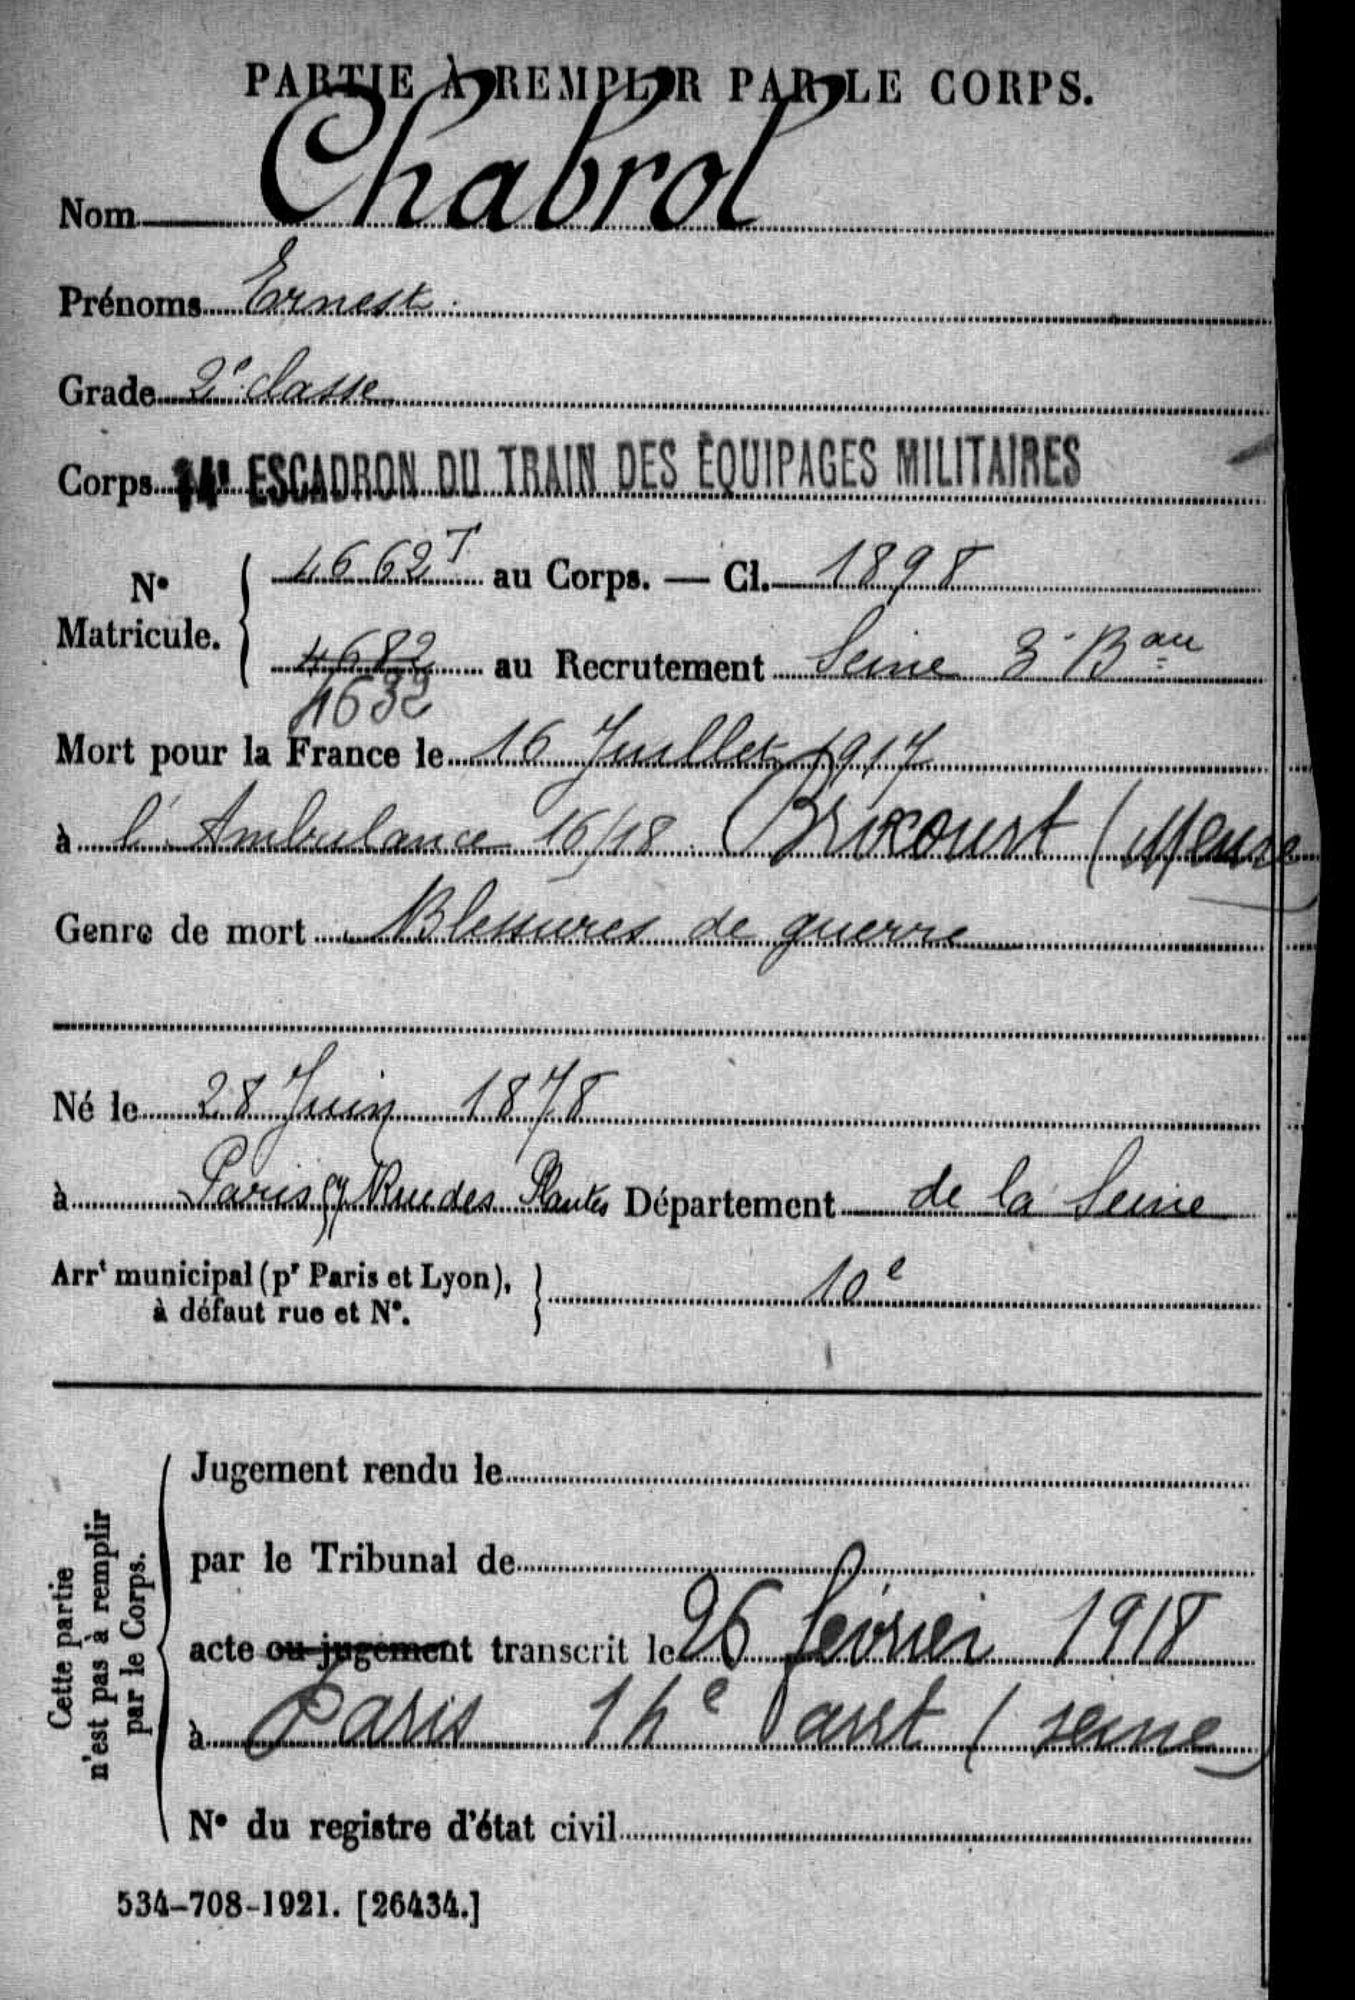 PARTIE À REMPLIR PAR LE CORPS.
Nom Chabrol
Prénoms Ernest.
Grade 2e classe
Corps 14e ESCADRON DU TRAIN DES ÉQUIPAGES MILITAIRES
No Matricule. { 4662T au Corps. — Cl. 1898
4682 au Recrutement Seine 3e Bau
4632
Mort pour la France le 16 Juillet 1917
à l'Ambulance 16/18 Brixourt (Meuse
Genre de mort Blessures de guerre
Né le 28 Juin 1878
à Paris Rue des Plantes Département de la Seine
Arrt municipal (pr Paris et Lyon), à défaut rue et No. } 10e
Cette partie n'est pas à remplir par le Corps.
Jugement rendu le
par le Tribunal de
acte ou jugement transcrit le 26 février 1918
à Paris 14e arrt (seine)
No du registre d'état civil
534-708-1921. [26434.]